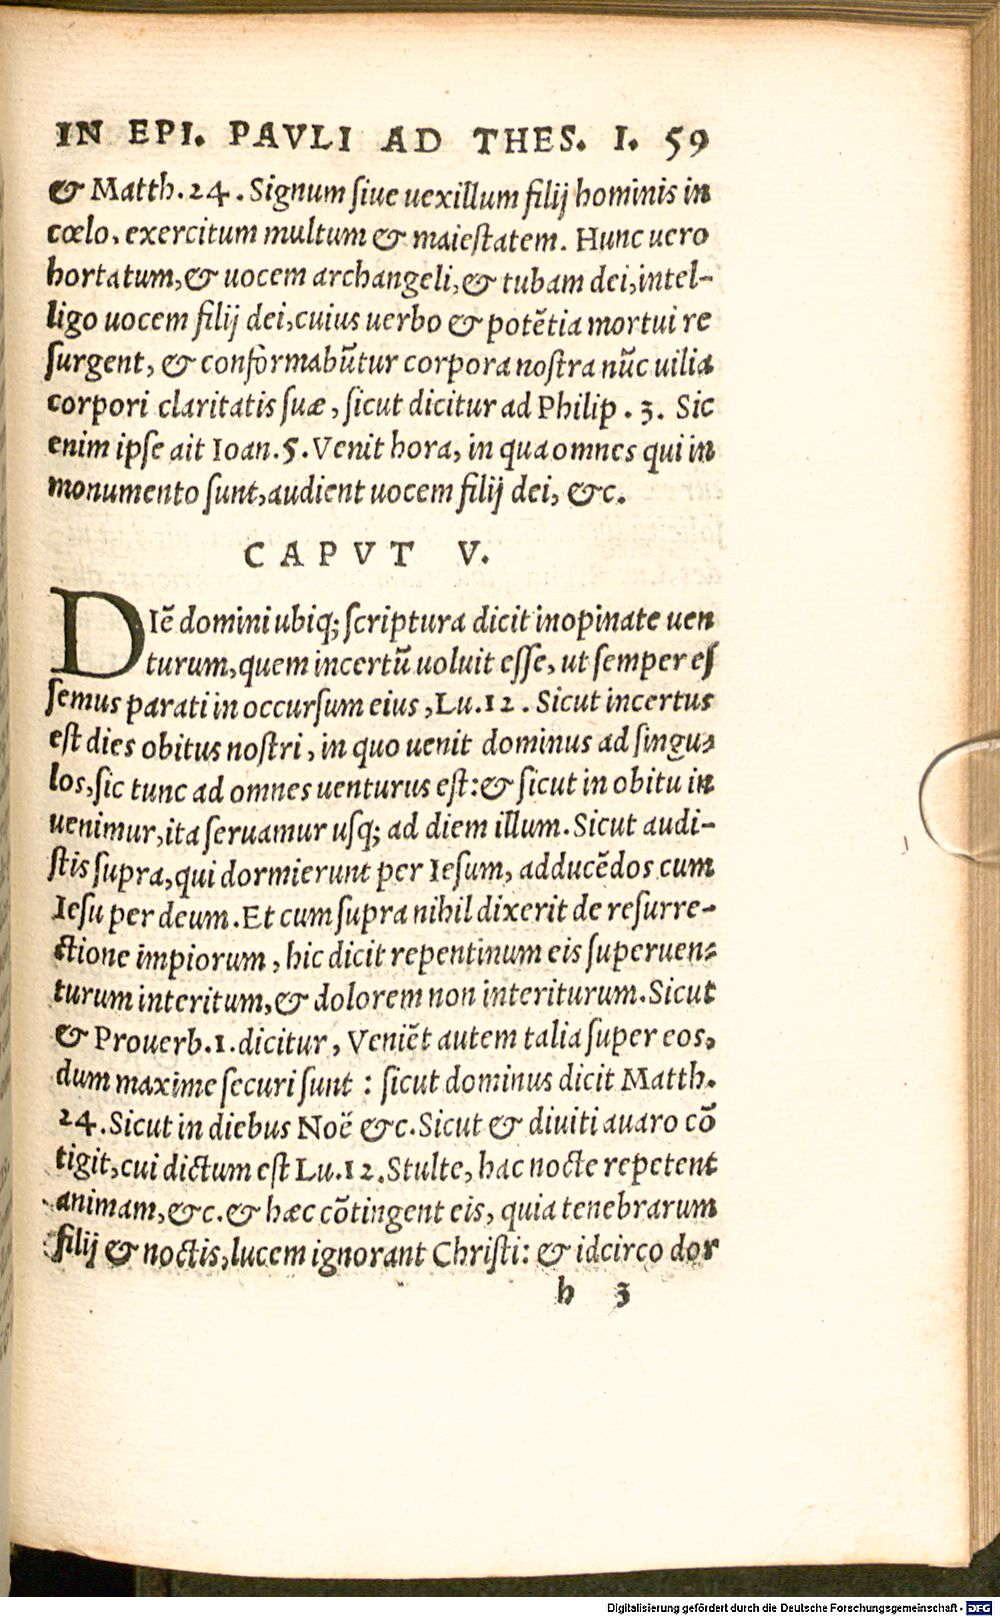 IN EPI. PAVLI AD THES. I. 59
& Matth.24. Signum ſiue uexillum filij hominis in
cœlo, exercitum multum & maieſtatem. Hunc uero
hortatum,& uocem archangeli,& tubam dei,intel-
ligo uocem filij dei,cuius uerbo & potētia mortui re
ſurgent, & conformabūtur corpora noſtra nūc uilia
corpori claritatis ſuæ, ſicut dicitur ad Philip. 3. Sic
enim ipſe ait Ioan.5. Venit hora, in qua omnes qui in
monumento ſunt,audient uocem filij dei, &c.
CAPVT V.
DIē domini ubiq; ſcriptura dicit inopinate uen
turum,quem incertū uoluit eſſe, ut ſemper eſ
ſemus parati in occurſum eius, Lu.12. Sicut incertus
eſt dies obitus noſtri, in quo uenit dominus ad ſingu-
los,ſic tunc ad omnes uenturus eſt:& ſicut in obitu in
uenimur,ita ſeruamur uſq; ad diem illum. Sicut audi-
ſtis ſupra,qui dormierunt per Ieſum, adducēdos cum
Ieſu per deum. Et cum ſupra nihil dixerit de reſurre-
ctione impiorum, hic dicit repentinum eis ſuperuen-
turum interitum,& dolorem non interiturum. Sicut
& Prouerb.1. dicitur, Veniēt autem talia ſuper eos,
dum maxime ſecuri ſunt : ſicut dominus dicit Matth.
24. Sicut in diebus Noë &c. Sicut & diuiti auaro cō
tigit,cui dictum eſt Lu.12. Stulte, hac nocte repetent
animam,&c.& hæc cōtingent eis, quia tenebrarum
filij & noctis,lucem ignorant Chriſti: & idcirco dor
h 3
Digitalisierung gefördert durch die Deutsche Forschungsgemeinschaft - DFG